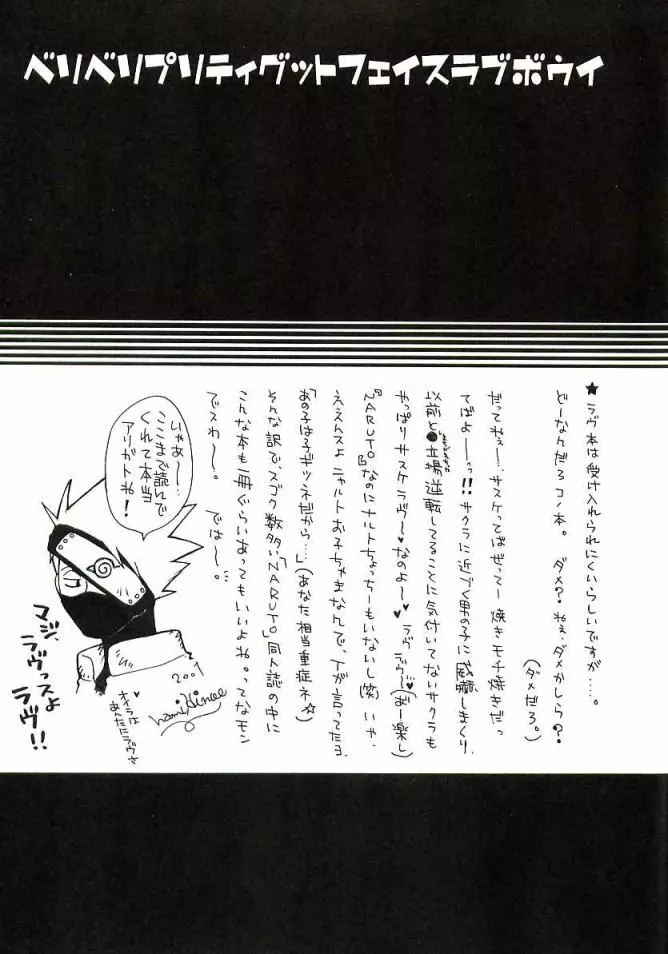 ベリベリプリティグットフェイスラブボウイ
★ラヴ本は受け入れられにくいらしいですが……。
どーなんだろコノ本。 ダメ?ねぇ、ダメかしら?
(ダメだろ。)
だってねぇー…サスケってばぜってー焼きモチ焼きだっ
てばよーっ!!サクラに近づく男の子に威嚇しまくり、
以前と立場逆転してることに気付いてないサクラも
やっぱりサスケラヴ〜♥なのよ〜♥ラヴラヴ〜♥(おー楽し)
『NARUTO』なのにナルトちょっちーもいないし(笑)いや、
ええんスよ ニャルトお子ちゃまなんで、Tが言ってたヨ
「あの子は子ギツネだから…」(あなた相当重症ネ☆)
そんな訳で、スゴク数多い「NARUTO」同人誌の中に
こんな本も一冊ぐらいあってもいいよね。ってなモン
でスわ〜。 では〜。
じゃあ〜…
ここまで読んで
くれて本当
アリガトね!
マジ、
ラヴっスよ
ラヴ!!
2001
オイラは
あんたにラヴさ♥